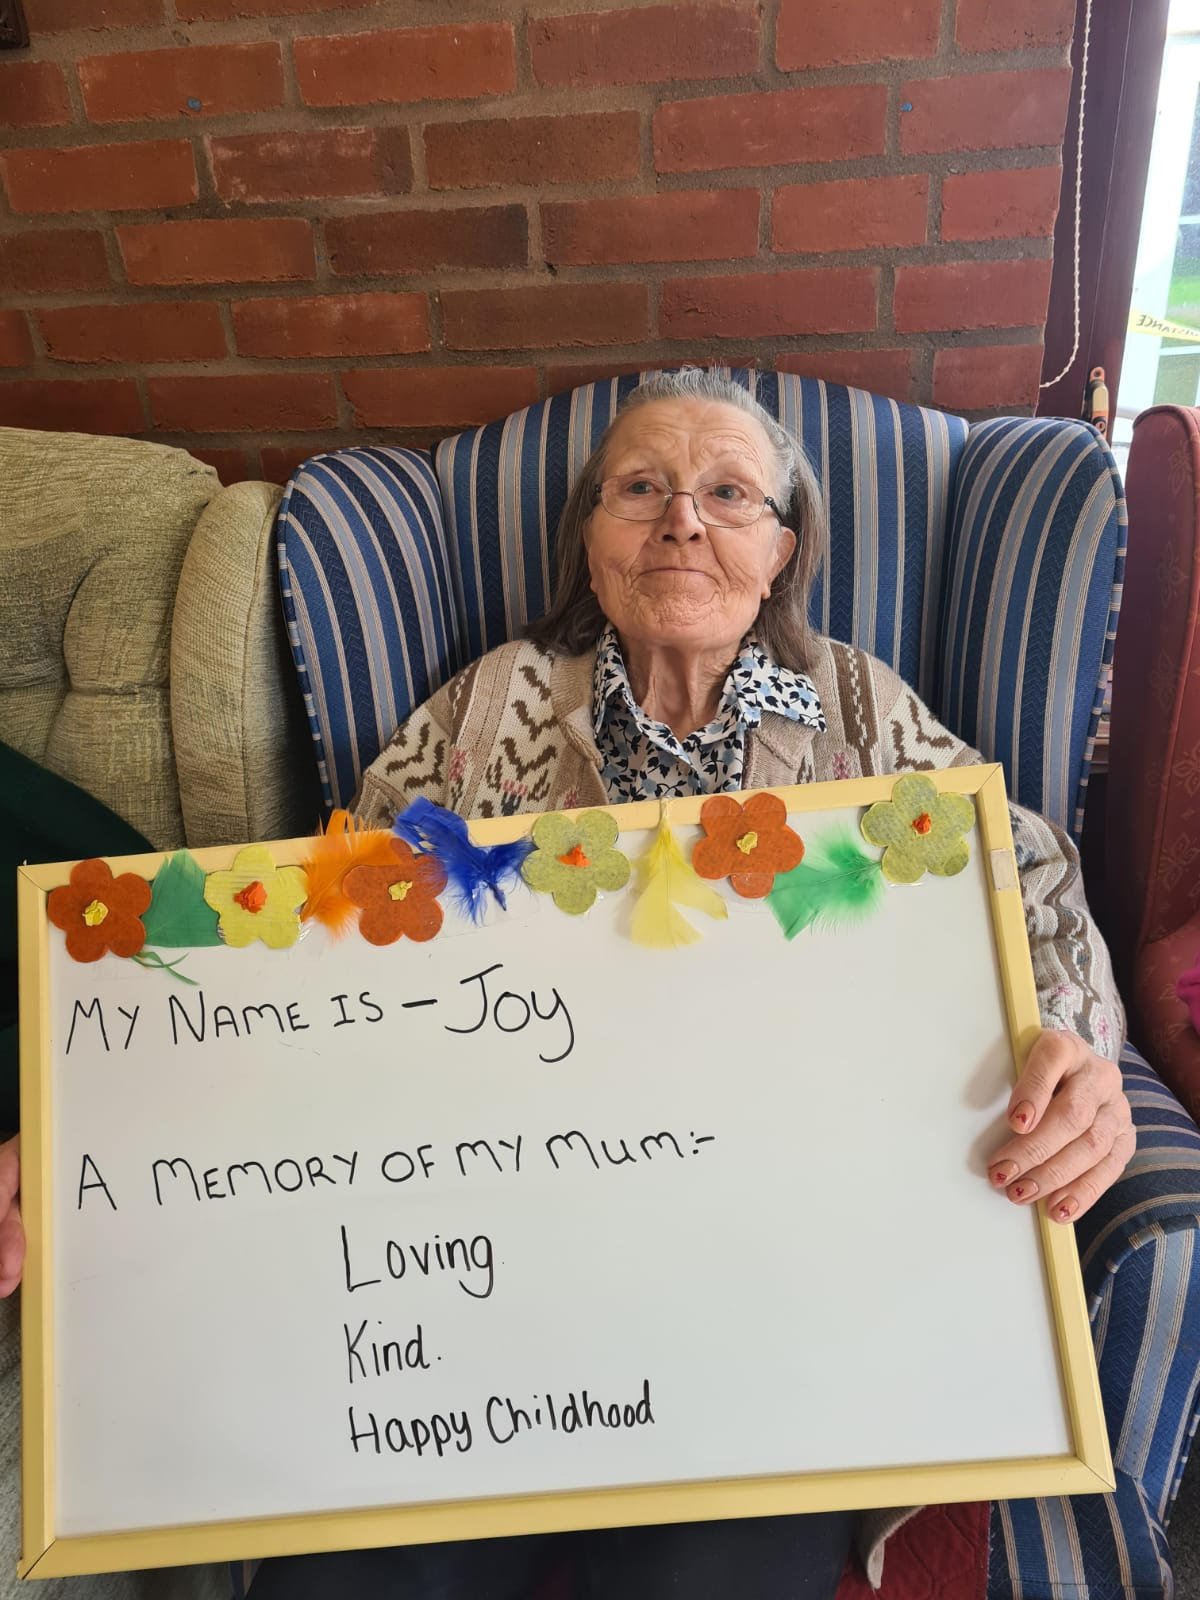 MY NAME IS - JOY
A MEMORY OF MY MUM:-
Loving
Kind.
Happy Childhood